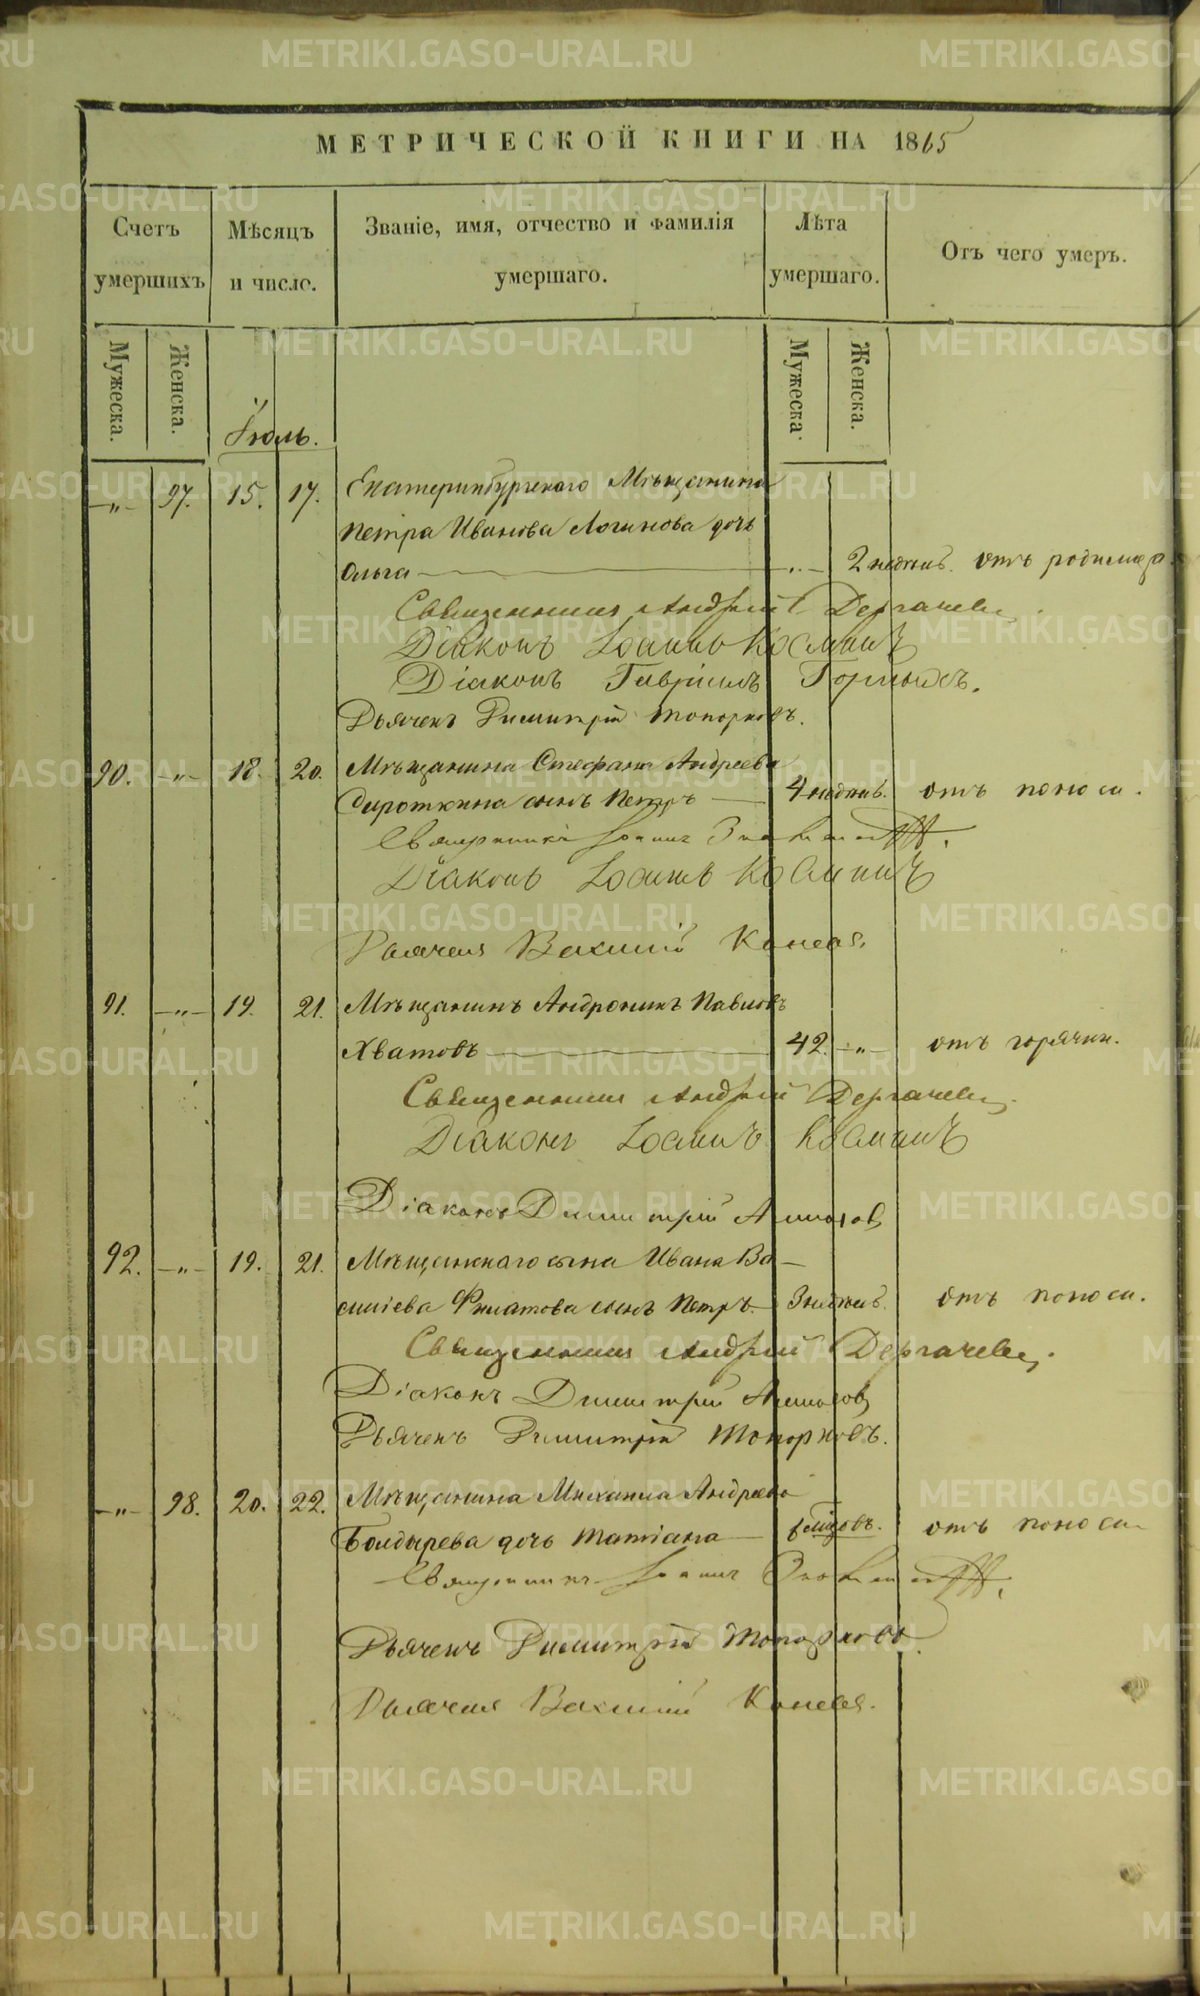 МЕТРИЧЕСКОЙ КНИГИ НА 1865
Счетъ умершихъ
Мѣсяцъ и число.
Званіе, имя, отчество и фамилія умершаго.
Лѣта умершаго.
Отъ чего умеръ.
Мужеска.
Женска.
Мужеска.
Женска.
Іюль.
—„— 97. 15. 17. Екатеринбургскаго Мѣщанина
Петра Иванова Логинова дочь
Ольга — „ — 2 недѣль. отъ родимца.
Священникъ Андрей Дергачевъ.
Діаконъ Іоаннъ Космин
Діаконъ Гавріилъ
Дьячекъ Димитрій Топорковъ.
90. —„— 18. 20. Мѣщанина Стефана Андреева
Сироткина сынъ Петръ — 4 недѣль. отъ поноса.
Священникъ Іоаннъ
Діаконъ Іоаннъ Космин
Дьячекъ
91. —„— 19. 21. Мѣщанинъ Андроникъ Павловъ
Хватовъ — 42. —„— отъ горячки.
Священникъ Андрей Дергачевъ.
Діаконъ Іоаннъ Космин
Діаконъ Димитрій
92. —„— 19. 21. Мѣщанскаго сына Ивана Ва-
силіева Филатова сынъ Петръ. — 3 недѣль. отъ поноса.
Священникъ Андрей Дергачевъ.
Діаконъ Димитрій
Дьячекъ Димитрій Топорковъ.
—„— 98. 20. 22. Мѣщанина Михаила Андреева
Болдырева дочь Татіана — 6 мѣсяцовъ. отъ поноса
Священникъ Іоаннъ
Дьячекъ Димитрій Топорковъ.
Дьячекъ
METRIKI.GASO-URAL.RU